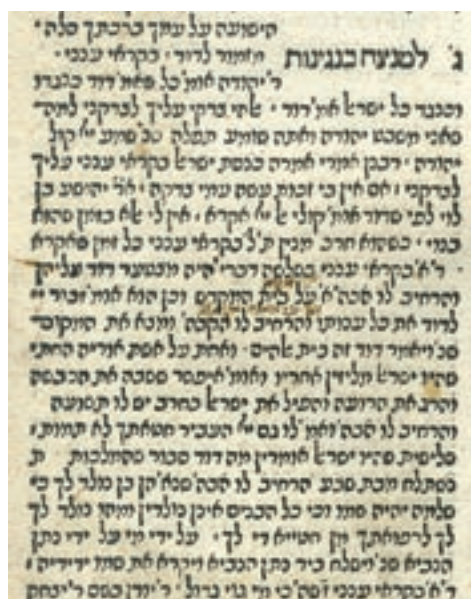 הישועה על עמך ברכתך סלה ·
למנצח בנגינות מזמור לדוד · בקראי ענני ·
ר' יהודה אומ' כל דוד כנגדו
וכנגד כל ישר' דוד · אלהי צדקי עליך לצדקני
משבט יהודה ואתה שומע תפלה שנ' שמע י"י קול
יהודה · רבנן אמרי אמרה כנסת ישר' בקראי ענני עליך
לצדקני · אם אין בי זכות עשה עמי צדקה · יהושע בן
לוי לפי שדוד אומ' קולי אל י"י אקרא · אין לי אלא בזמן שהוא
בנוי · כשהוא חרב מנין ת"ל בקראי ענני כל זמן שאקרא
ד"א בקראי ענני היה מצטער דוד עליהן
והרחיב לו הקב"ה על בית המקדש וכן הוא אומ' זכור י"י
לדוד את כל ענותו והרחיב לו הקבה ומצא את המקום
שנ' ויאמר דוד זה בית אלהים · ואחת על אשת אוריה החתי
שהיו ישר' מלידין אחריו ואומ' איפשר ששבה את הכבשה
והרג את הרועה והפיל את ישר' בחרב יש לו תשועה
והרחיב לו הקבה ואמ' לו גם י"י העביר חטאתך לא תמות ·
שלישית שהיו ישר' אומרין מה דוד סבור שהמלכות
מבת שבע הרחיב לו הקבה שנא' הן בן נולד לך כי
שלמה יהיה שמו וכי כל הבנים אינן נולדין ומהו נולד לך
לך לרפואתך מן לך · על ידי מי על ידי נתן
הנביא שנ' וישלח ביד נתן הנביא ויקרא את שמו ידידיה ·
ד"א בקראי ענני כי מי גוי גדול · ר' יודן בשם ר' יצחק